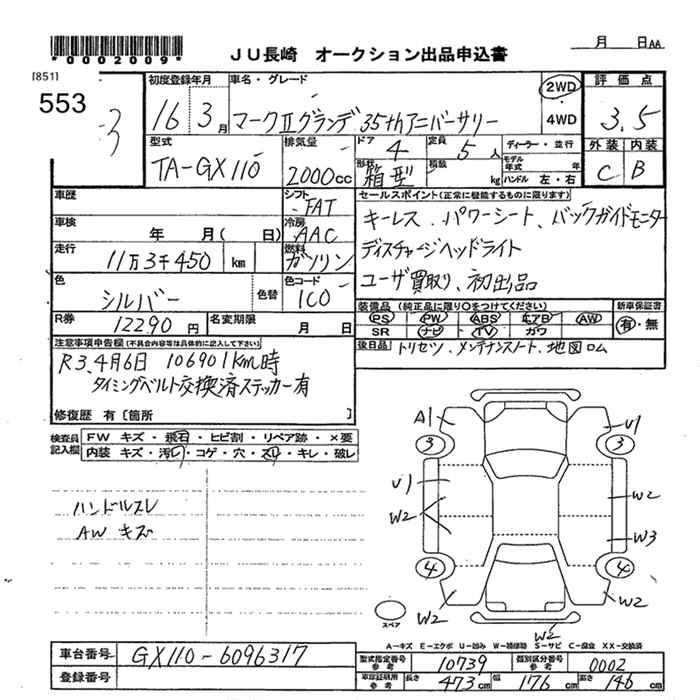 *0002009*
JU長崎 オークション出品申込書
月 日AA
[851]
553
3
初度登録年月 車名・グレード
16 3月 マークⅡグランデ35thアニバーサリー
2WD
4WD
評価点
3.5
外装 内装
C B
型式 排気量 ドア 定員
TA-GX110 2000cc 4 5人
形状 積数
箱型 kg
ディーラー・並行
モデル年式 年
ハンドル 左・右
車歴
シフト
FAT
車検 年 月( 日)
冷房
AAC
走行 11万3千450 km
燃料
ガソリン
色 シルバー 色替
色コード
1C0
R券 12290円 名変期限 月 日
セールスポイント(正常に機能するものに限ります)
キーレス、パワーシート、バックガイドモニター
ディスチャージヘッドライト
ユーザ買取り、初出品
装備品(純正品に限り○をつけてください) 新車保証書
PS PW ABS エアB AW 有・無
SR ナビ TV ガワ
後日品 トリセツ、メンテナンスノート、地図ロム
注意事項申告欄(不具合内容等は具体的に記入して下さい)
R3.4月6日 106901km時
タイミングベルト交換済ステッカー有
修復歴 有〔箇所
検査員記入欄
FW キズ・飛石・ヒビ割・リペア跡・×要
内装 キズ・汚レ・コゲ・穴・スレ・キレ・破レ
ハンドルスレ
AW キズ
A1 U1
3 3
U1
W2 W2
W3
4 4
W2 W2
スペア
W2
A-キズ E-エクボ U-凹み W-補修跡 S-サビ C-腐食 XX-交換済
車台番号 GX110-6096317
登録番号
型式指定番号参考 10739 類別区分番号参考 0002
車庫証明用参考 長さ 473cm 幅 176cm 高さ 146cm